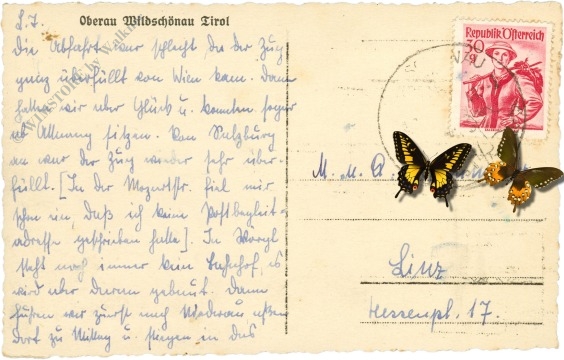 Oberau Wildschönau Tirol
L. J.
Die Abfahrt war schlecht da der Zug
ganz überfüllt von Wien kam. Dann
hatten wir aber Glück u. konnten sogar
ab Attnang sitzen. Von Salzburg
an war der Zug wieder sehr über-
füllt. [In der Mozartstr. fiel mir
schon ein, daß ich keine Postbegleit-
adresse geschrieben hatte]. In Wörgl
steht noch immer kein Bahnhof, es
wird aber daran gebaut. Dann
fuhren wir zurst nach Niederau aßen
dort zu Mittag u. stiegen in das
Republik Österreich
30
g
M. u. A.
Linz
Hessenpl. 17.